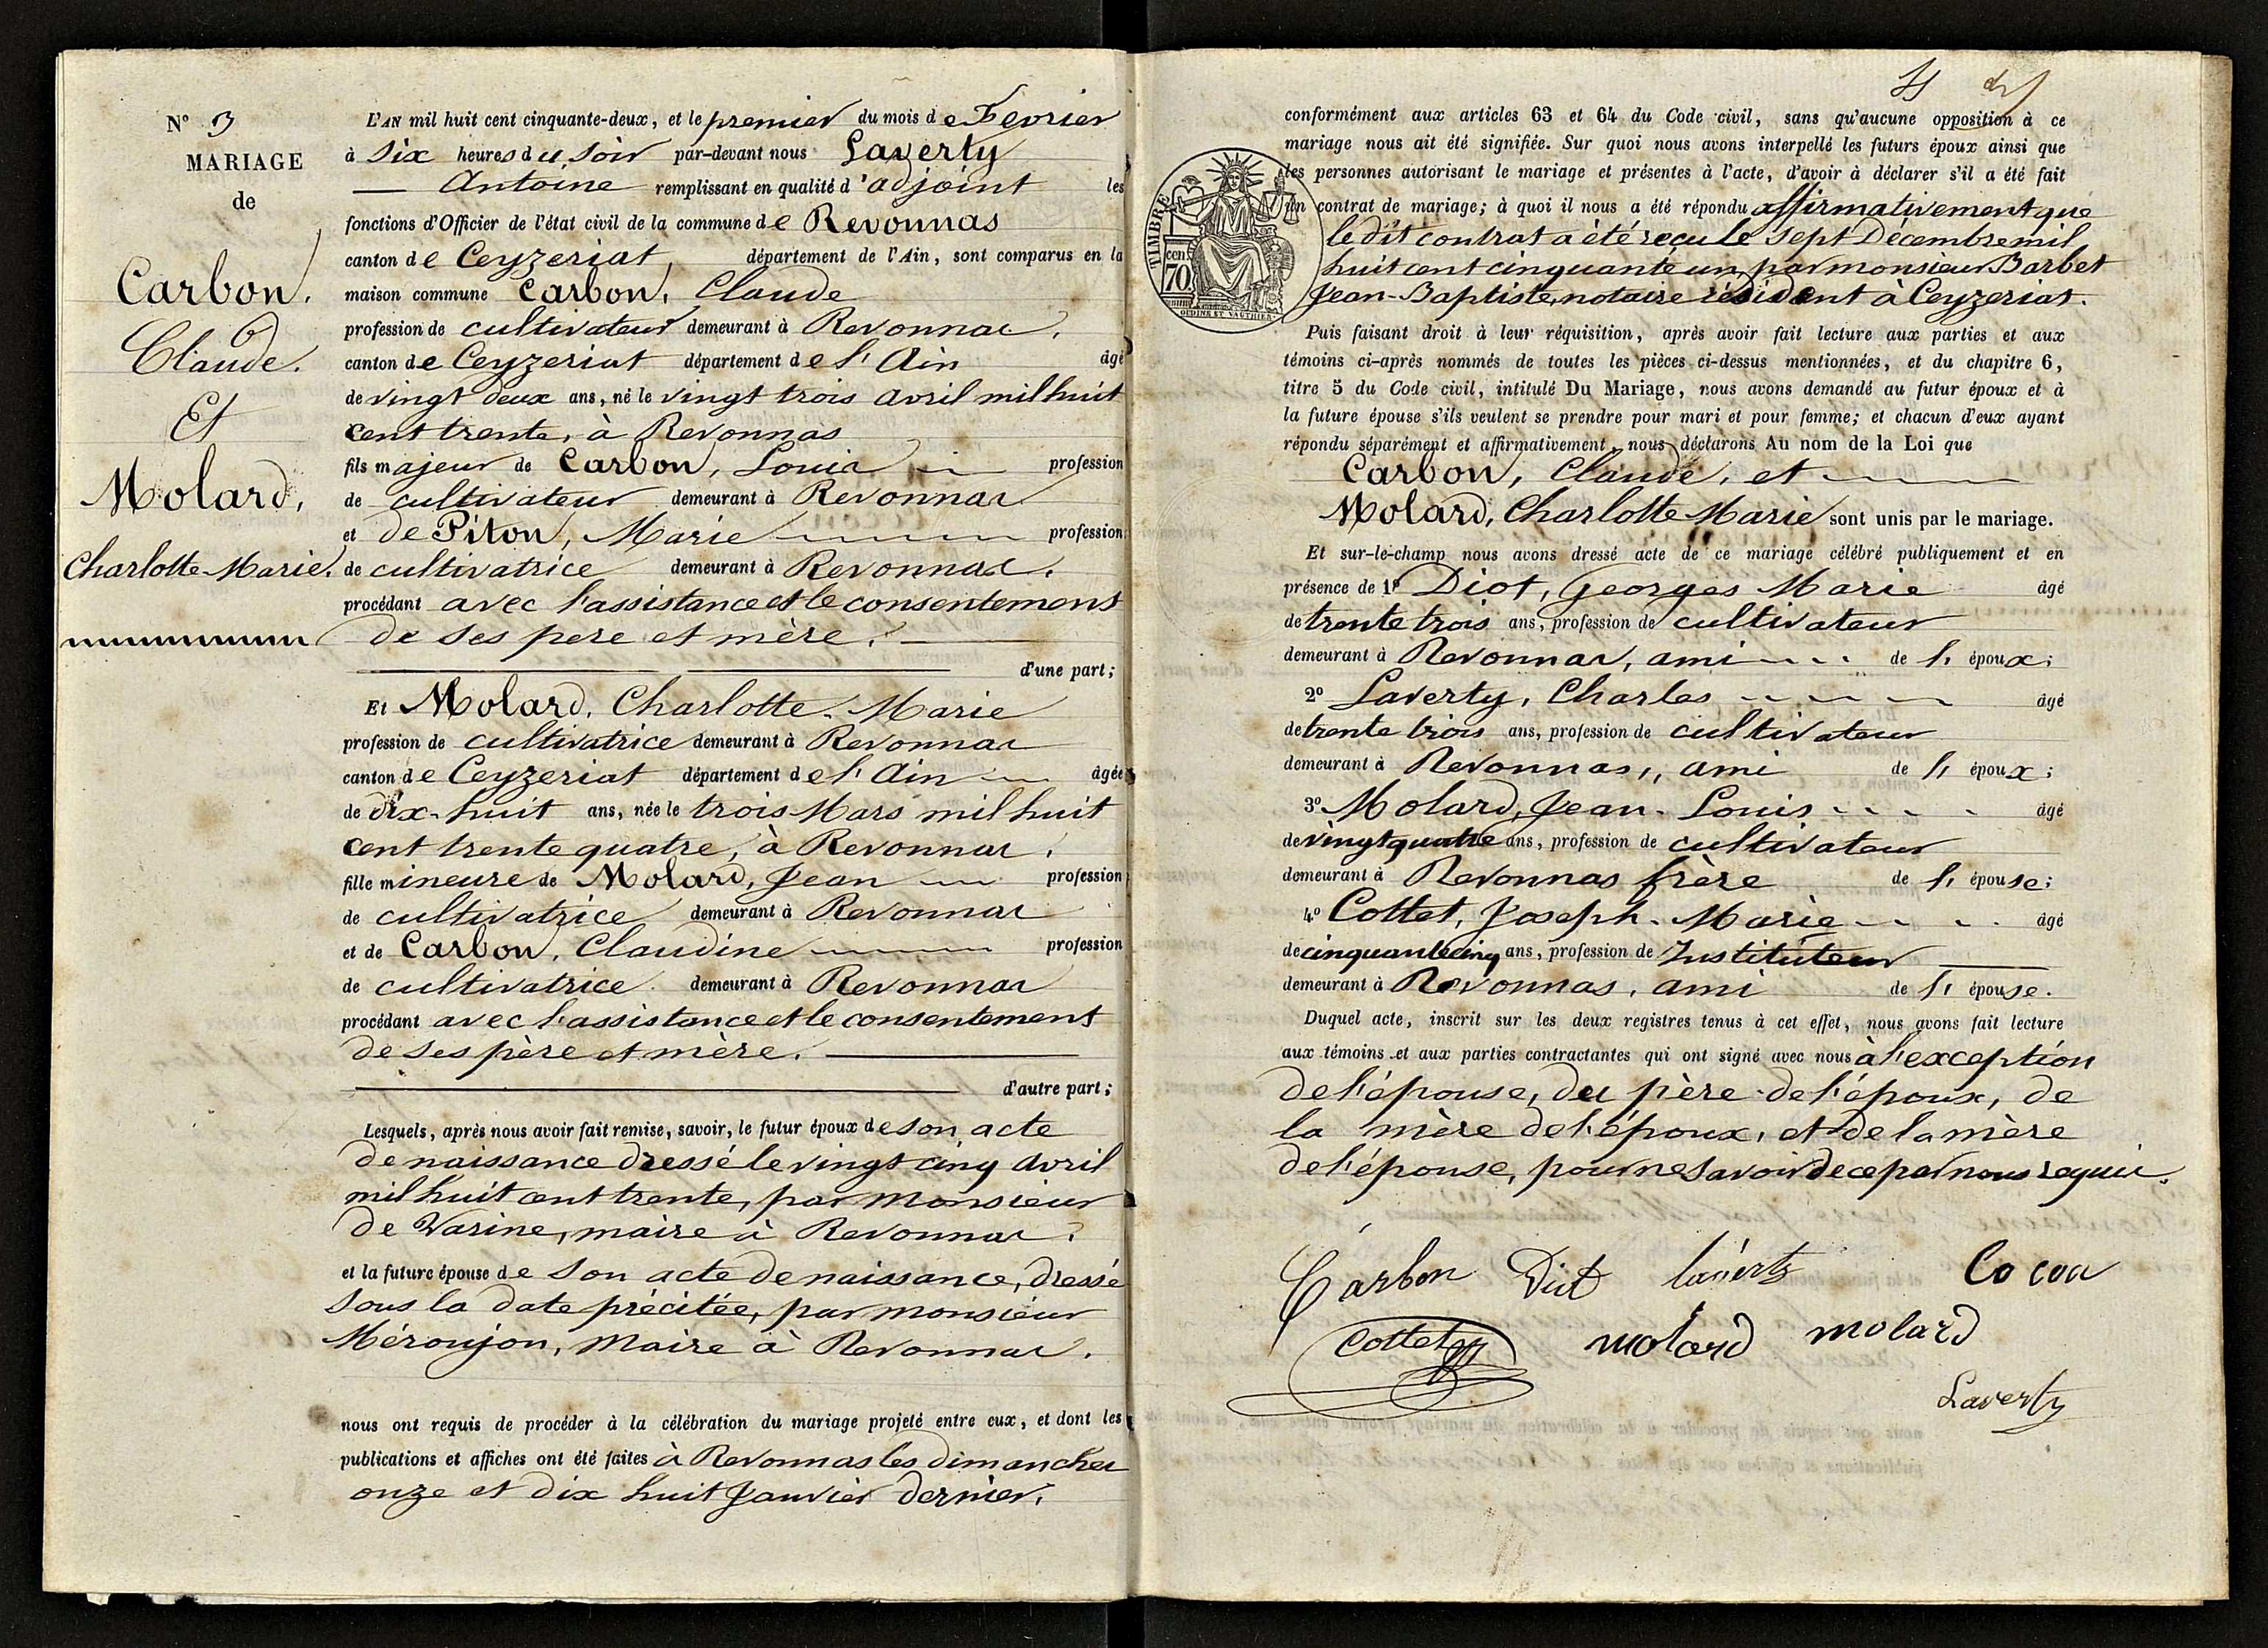 N° 3
MARIAGE
de
Carbon,
Claude.
Et
Molard,
Charlotte-Marie.
L'AN mil huit cent cinquante-deux, et le premier du mois de Fevrier
à Six heures du Soir par-devant nous Laverty
Antoine remplissant en qualité d'adjoint les
fonctions d'Officier de l'état civil de la commune de Revonnas
canton de Ceyzeriat, département de l'Ain, sont comparus en la
maison commune Carbon, Claude
profession de cultivateur demeurant à Revonnas,
canton de Ceyzeriat département de l'Ain âgé
de vingt deux ans, né le vingt trois avril mil huit
cent trente, à Revonnas
fils majeur de Carbon, Louis profession
de cultivateur demeurant à Revonnas
et de Piton, Marie profession
de cultivatrice demeurant à Revonnas.
procédant avec l'assistance et le consentement
de ses pere et mère.
d'une part;
Et Molard, Charlotte-Marie
profession de cultivatrice demeurant à Revonnas
canton de Ceyzeriat département de l'Ain âgée
de dix-huit ans, née le trois Mars mil huit
cent trente quatre, à Revonnas.
fille mineure de Molard, Jean profession
de cultivatrice demeurant à Revonnas
et de Carbon, Claudine profession
de cultivatrice demeurant à Revonnas
procédant avec l'assistance et le consentement
de ses père et mère.
d'autre part;
Lesquels, après nous avoir fait remise, savoir, le futur époux de son acte
de naissance dressé le vingt cinq avril
mil huit cent trente, par monsieur
de Varine, maire à Revonnas.
et la future épouse de son acte de naissance, dressé
sous la date précitée, par monsieur
Méroujon, Maire à Revonnas.
nous ont requis de procéder à la célébration du mariage projeté entre eux, et dont les
publications et affiches ont été faites à Revonnas les dimanches
onze et dix huit Janvier dernier.
conformément aux articles 63 et 64 du Code civil, sans qu'aucune opposition à ce
mariage nous ait été signifiée. Sur quoi nous avons interpellé les futurs époux ainsi que
les personnes autorisant le mariage et présentes à l'acte, d'avoir à déclarer s'il a été fait
un contrat de mariage; à quoi il nous a été répondu affirmativement que
le dit contrat a été reçu le sept Décembre mil
huit cent cinquante un, par monsieur Barbet
Jean-Baptiste, notaire résident à Ceyzeriat.
TIMBRE
cen.
70
Puis faisant droit à leur réquisition, après avoir fait lecture aux parties et aux
témoins ci-après nommés de toutes les pièces ci-dessus mentionnées, et du chapitre 6,
titre 5 du Code civil, intitulé Du Mariage, nous avons demandé au futur époux et à
la future épouse s'ils veulent se prendre pour mari et pour femme; et chacun d'eux ayant
répondu séparément et affirmativement, nous déclarons Au nom de la Loi que
Carbon, Claude, et
Molard, Charlotte Marie sont unis par le mariage.
Et sur-le-champ nous avons dressé acte de ce mariage célébré publiquement et en
présence de 1° Diot, Georges Marie âgé
de trente trois ans, profession de cultivateur
demeurant à Revonnas, ami de l' époux;
2° Laverty, Charles âgé
de trente trois ans, profession de cultivateur
demeurant à Revonnas, ami de l' époux;
3° Molard, Jean-Louis âgé
de vingt quatre ans, profession de cultivateur
demeurant à Revonnas frère de l' épouse;
4° Cottet, Joseph-Marie âgé
de cinquante cinq ans, profession de Instituteur
demeurant à Revonnas, ami de l' épouse.
Duquel acte, inscrit sur les deux registres tenus à cet effet, nous avons fait lecture
aux témoins et aux parties contractantes qui ont signé avec nous à l'exception
de l'épouse, du père de l'époux, de
la mère de l'époux, et de la mère
de l'épouse, pour ne savoir de ce par nous requis.
Carbon Diot laverty
Cottet molard molard
Laverty